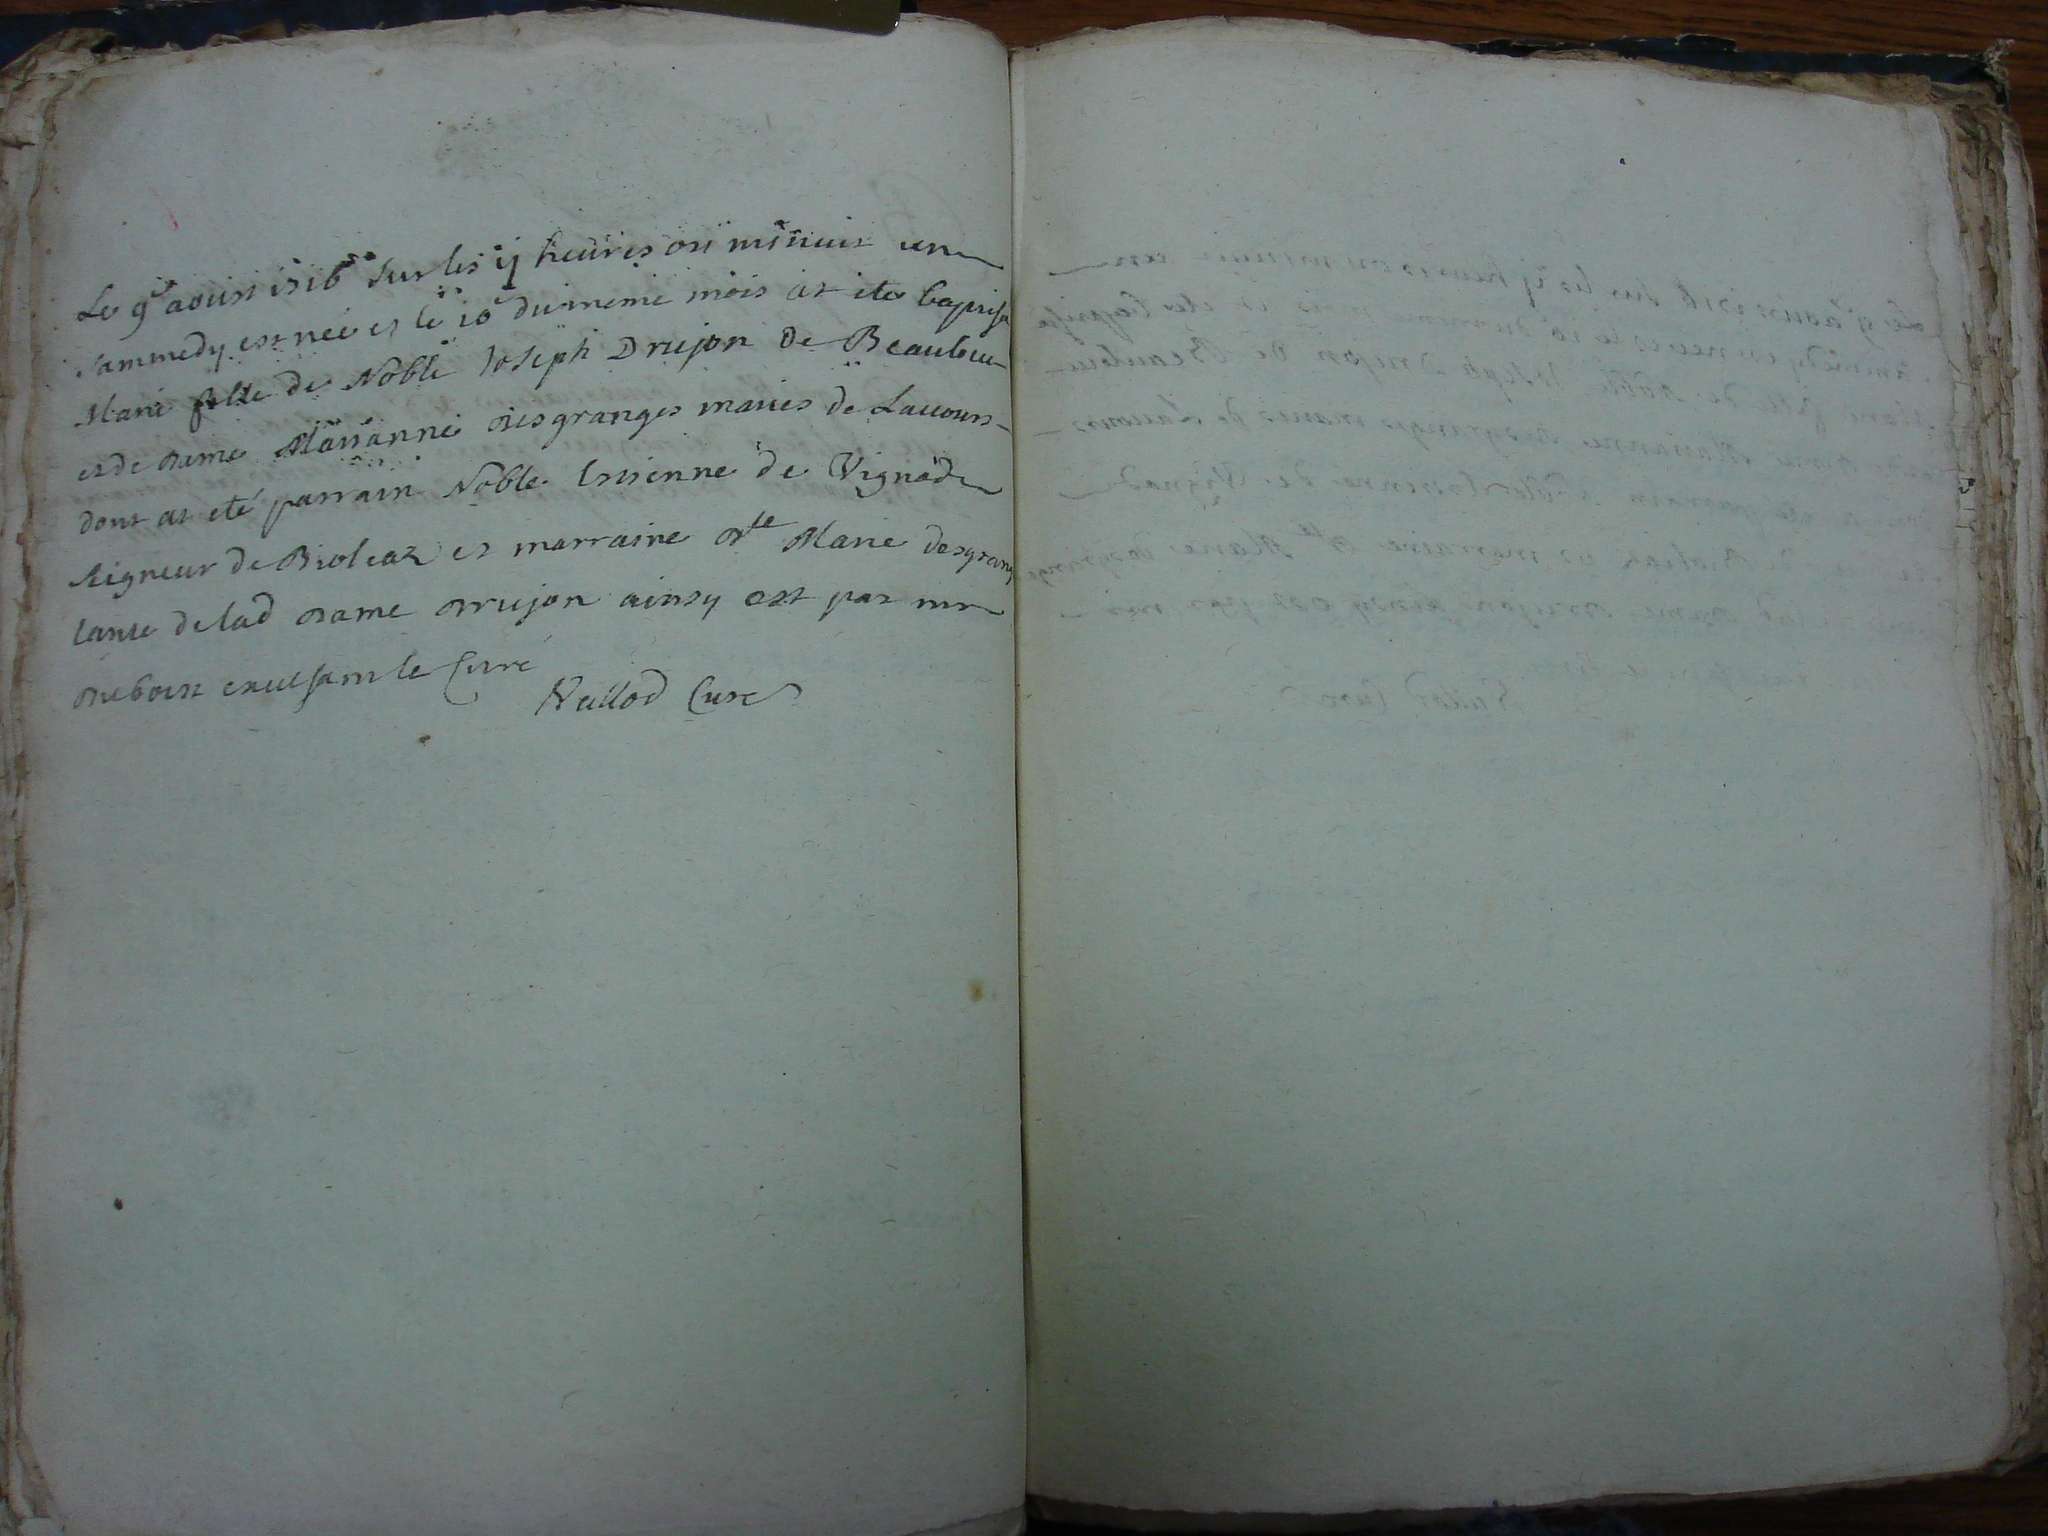 Le 9e aoust 1716 sur les ij heures ou minuit un
sammedy est neé et le 10e du meme mois at ete baptisé
Marie fille de Noble Joseph Drujon de Beaulieu
et de Dame Marianne Desgranges mariés de Lavours
dont at eté parrain Noble Estienne de Vignod
seigneur de Bioleaz et marraine Dlle Marie desgrang
tante de lad Dame Drujon ainsy est par moy
le Curé
Nallod Curé